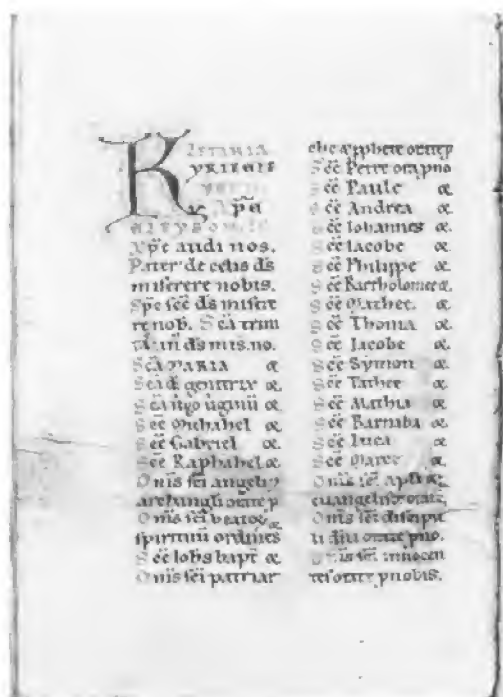 LETANIA
KYRIELE
Xpe
Xpe audi nos.
Pater de celis ds
miserere nobis.
Spe scē ds misere
re nob. Scā trini
ds mis. no.
Scā MARIA oꝛ.
Scā di genitrix oꝛ.
Scā ṽgo ṽginū oꝛ.
Scē Michahel oꝛ.
Scē Gabriel oꝛ.
Scē Raphahel oꝛ.
Omīs scī angeli
archangeli orate p
Omīs scī beatoꝝ
spirituū ordines
Scē Iohs bapt oꝛ.
Omīs scī patriar
che & pphete orate p
Scē Petre ora p no
Scē Paule oꝛ.
Scē Andrea oꝛ.
Scē Iohannes oꝛ.
Scē Iacobe oꝛ.
Scē Philippe oꝛ.
Scē Bartholomee oꝛ.
Scē Mathee. oꝛ.
Scē Thoma oꝛ.
Scē Iacobe oꝛ.
Scē Symon oꝛ.
Scē Tathee oꝛ.
Scē Mathia oꝛ.
Scē Barnaba oꝛ.
Scē Luca oꝛ.
Scē Marce oꝛ.
Omīs scī apli &
euangeliste orate
Omīs scī discipu
li dni orate p no.
Omīs scī innocen
tes orate p nobis.